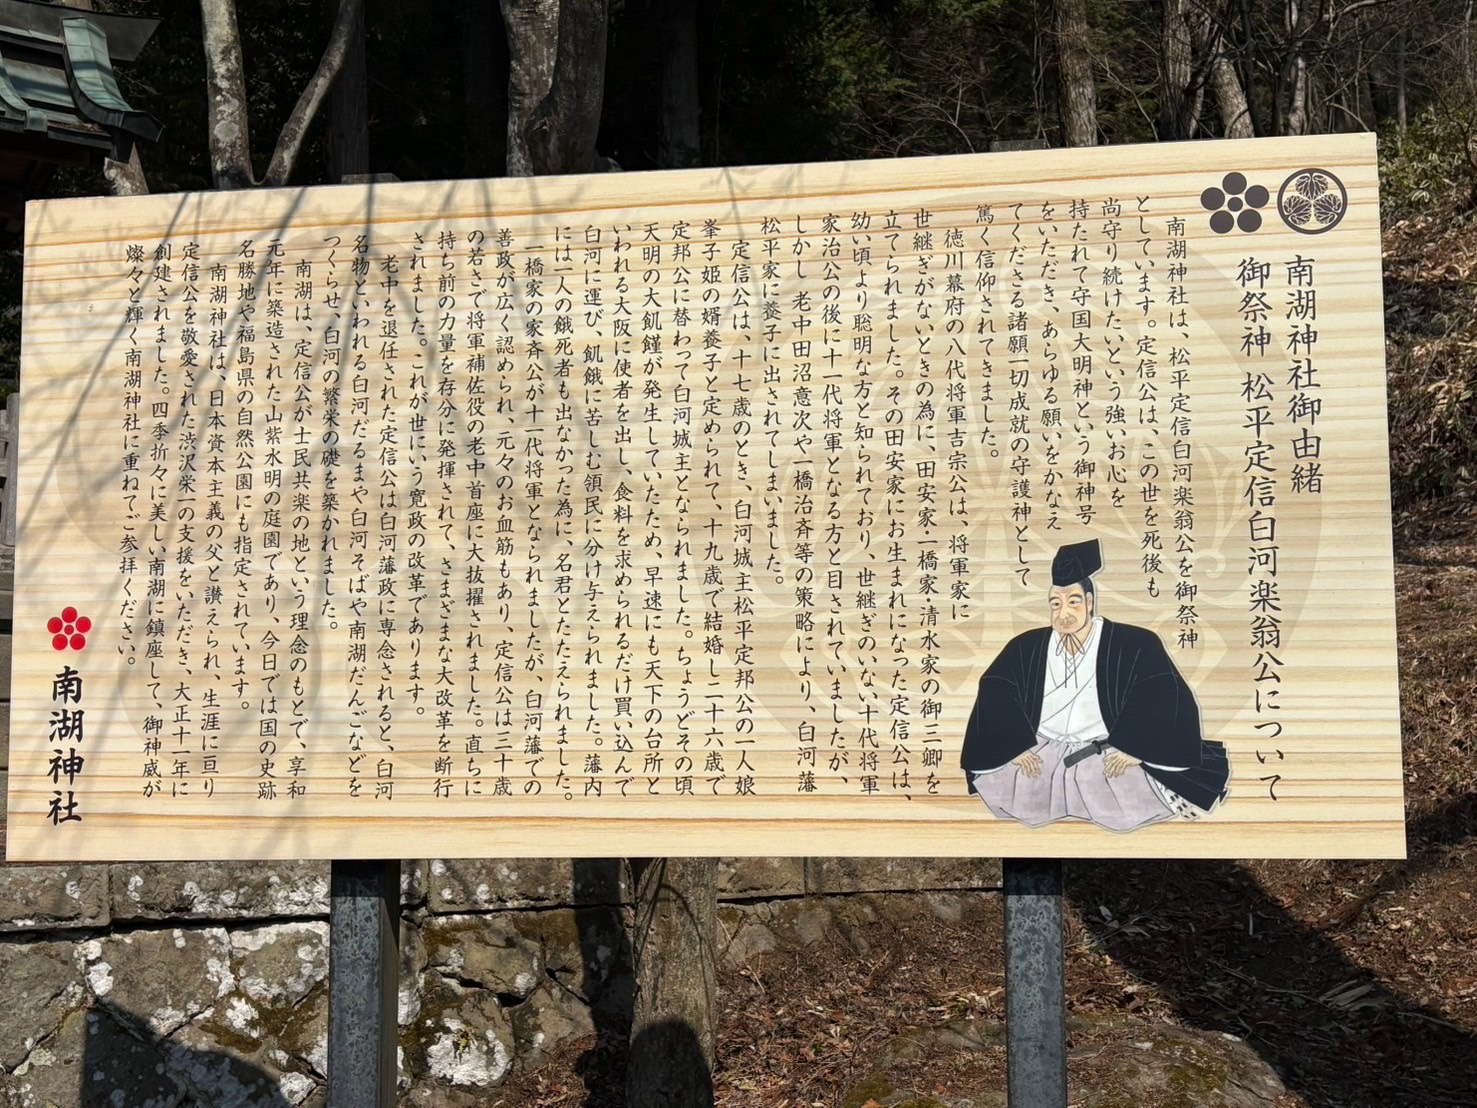 南湖神社御由緒
御祭神 松平定信白河楽翁公について
南湖神社は、松平定信白河楽翁公を御祭神
としています。定信公は、この世を死後も
尚守り続けたいという強いお心を
持たれて守国大明神という御神号
をいただき、あらゆる願いをかなえ
てくださる諸願一切成就の守護神として
篤く信仰されてきました。
徳川幕府の八代将軍吉宗公は、将軍家に
世継ぎがないときの為に、田安家・一橋家・清水家の御三卿を
立てられました。その田安家にお生まれになった定信公は、
幼い頃より聡明な方と知られており、世継ぎのいない十代将軍
家治公の後に十一代将軍となる方と目されていましたが、
しかし、老中田沼意次や一橋治斉等の策略により、白河藩
松平家に養子に出されてしまいました。
定信公は、十七歳のとき、白河城主松平定邦公の一人娘
峯子姫の婿養子と定められて、十九歳で結婚し二十六歳で
定邦公に替わって白河城主となられました。ちょうどその頃
天明の大飢饉が発生していたため、早速にも天下の台所と
いわれる大阪に使者を出し、食料を求められるだけ買い込んで
白河に運び、飢餓に苦しむ領民に分け与えられました。藩内
には一人の餓死者も出なかった為に、名君とたたえられました。
一橋家の家斉公が十一代将軍となられましたが、白河藩での
善政が広く認められ、元々のお血筋もあり、定信公は三十歳
の若さで将軍補佐役の老中首座に大抜擢されました。直ちに
持ち前の力量を存分に発揮されて、さまざまな大改革を断行
されました。これが世にいう寛政の改革であります。
老中を退任された定信公は白河藩政に専念されると、白河
名物といわれる白河だるまや白河そばや南湖だんごなどを
つくらせ、白河の繁栄の礎を築かれました。
南湖は、定信公が士民共楽の地という理念のもとで、享和
元年に築造された山紫水明の庭園であり、今日では国の史跡
名勝地や福島県の自然公園にも指定されています。
南湖神社は、日本資本主義の父と讃えられ、生涯に亘り
定信公を敬愛された渋沢栄一の支援をいただき、大正十一年に
創建されました。四季折々に美しい南湖に鎮座して、御神威が
燦々と輝く南湖神社に重ねてご参拝ください。
南湖神社